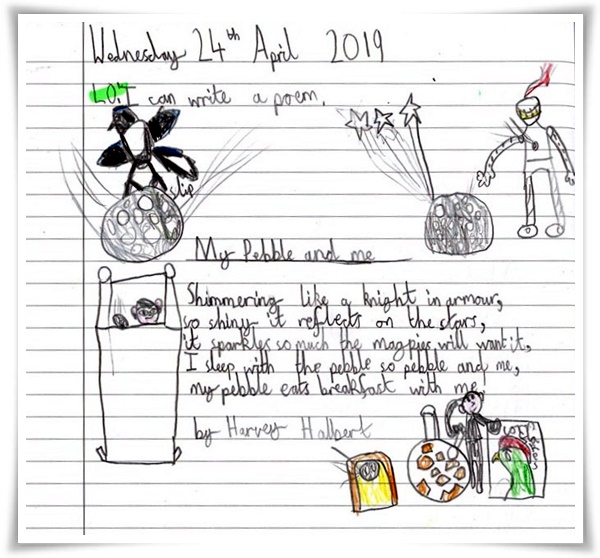 Wednesday 24th April 2019
LO: I can write a poem.
slip
My Pebble and me
Shimmering like a knight in armour,
so shiny it reflects on the stars,
it sparkles so much the magpies will want it,
I sleep with the pebble so pebble and me,
my pebble eats breakfast with me.
by Harvey Halbert